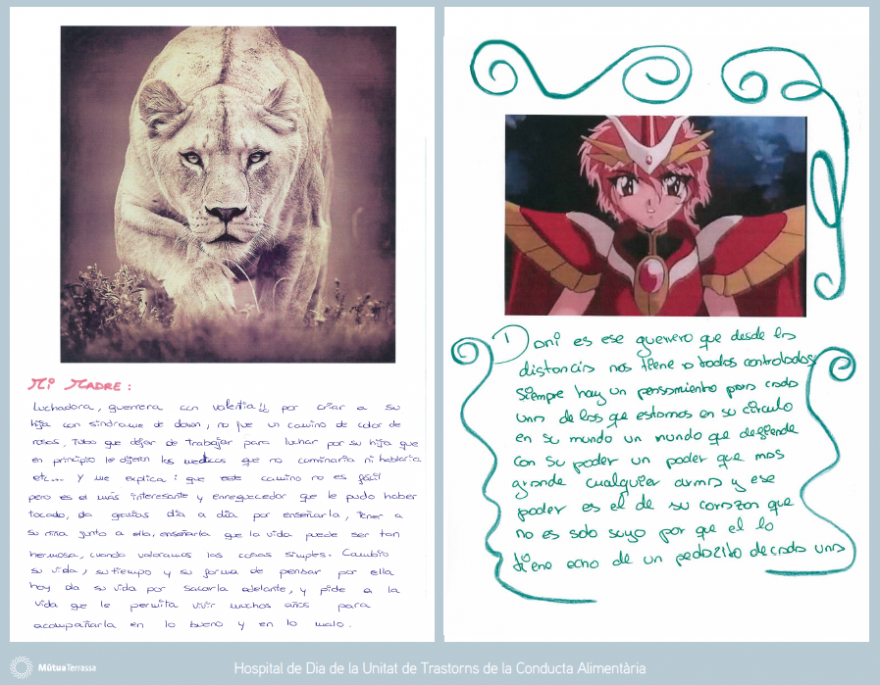 Mi MADRE:
luchadora, guerrera con valentia!! por criar a su
hija con síndrome de down, no fue un camino de color de
rosas, tubo que dejar de trabajar para luchar por su hija que
en principio le dijeron los medicos que no caminaria ni hablaria
etc... y me explica: que este camino no es fácil
pero es el más interesante y enrequecedor que le pudo haber
tocado, da gracias dia a dia por enseñarla, tener a
su niña junto a ella, enseñarla que la vida puede ser tan
hermosa, cuando valoramos las cosas simples. Cambio
su vida, su tiempo y su forma de pensar por ella
hoy da su vida por sacarla adelante, y pide a la
vida que le permita vivir muchos años para
acompañarla en lo bueno y en lo malo.
Dani es ese guerrero que desde las
distancias nos tiene a todos controlados
siempre hay un pensamiento para cada
uno de los que estamos en su circulo
en su mundo un mundo que defiende
con su poder un poder que mas
grande cualquier arma y ese
poder es el de su corazon que
no es solo suyo por que el lo
tiene echo de un pedazito de cada uno
MútuaTerrassa
Hospital de Dia de la Unitat de Trastorns de la Conducta Alimentària